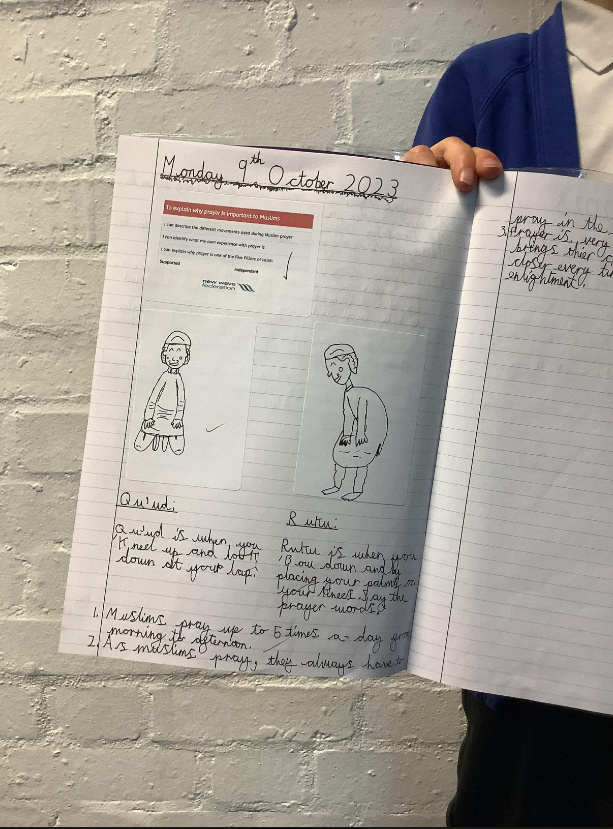 Monday 9th October 2023
To explain why prayer is important to Muslims
I can describe the different movements used during Muslim prayer
I can identify what my own experience with prayer is
I can explain why prayer is one of the five Pillars of Islam
Supported
Independent
new wave
federation
Qu'ud:
Qu'ud is when you
Kneel up and look
down at your lap.
Rutu:
Rutu is when you
Bow down and by
placing your palms on
your knees. Say the
prayer words.
1. Muslims pray up to 5 times a day from
morning to afternoon.
2. As muslims pray, they always have to
pray in the
3. Prayer is very
brings thier
closy every
enlightment.